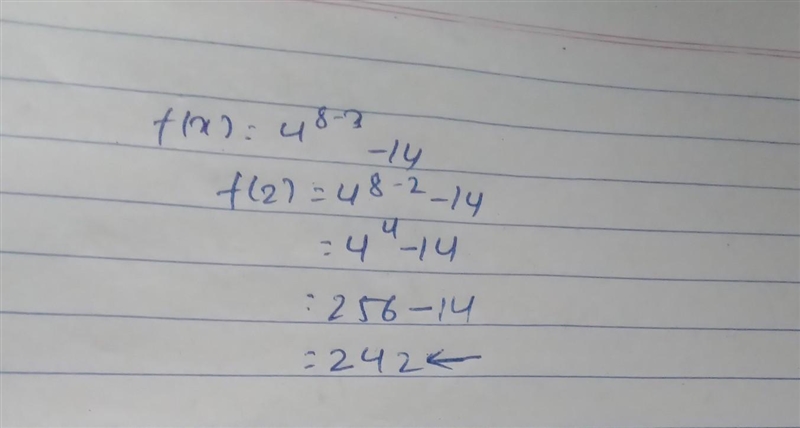 f(x) = 4^{8-x} - 14
f(2) = 4^{8-2} - 14
= 4^4 - 14
= 256 - 14
= 242 ←